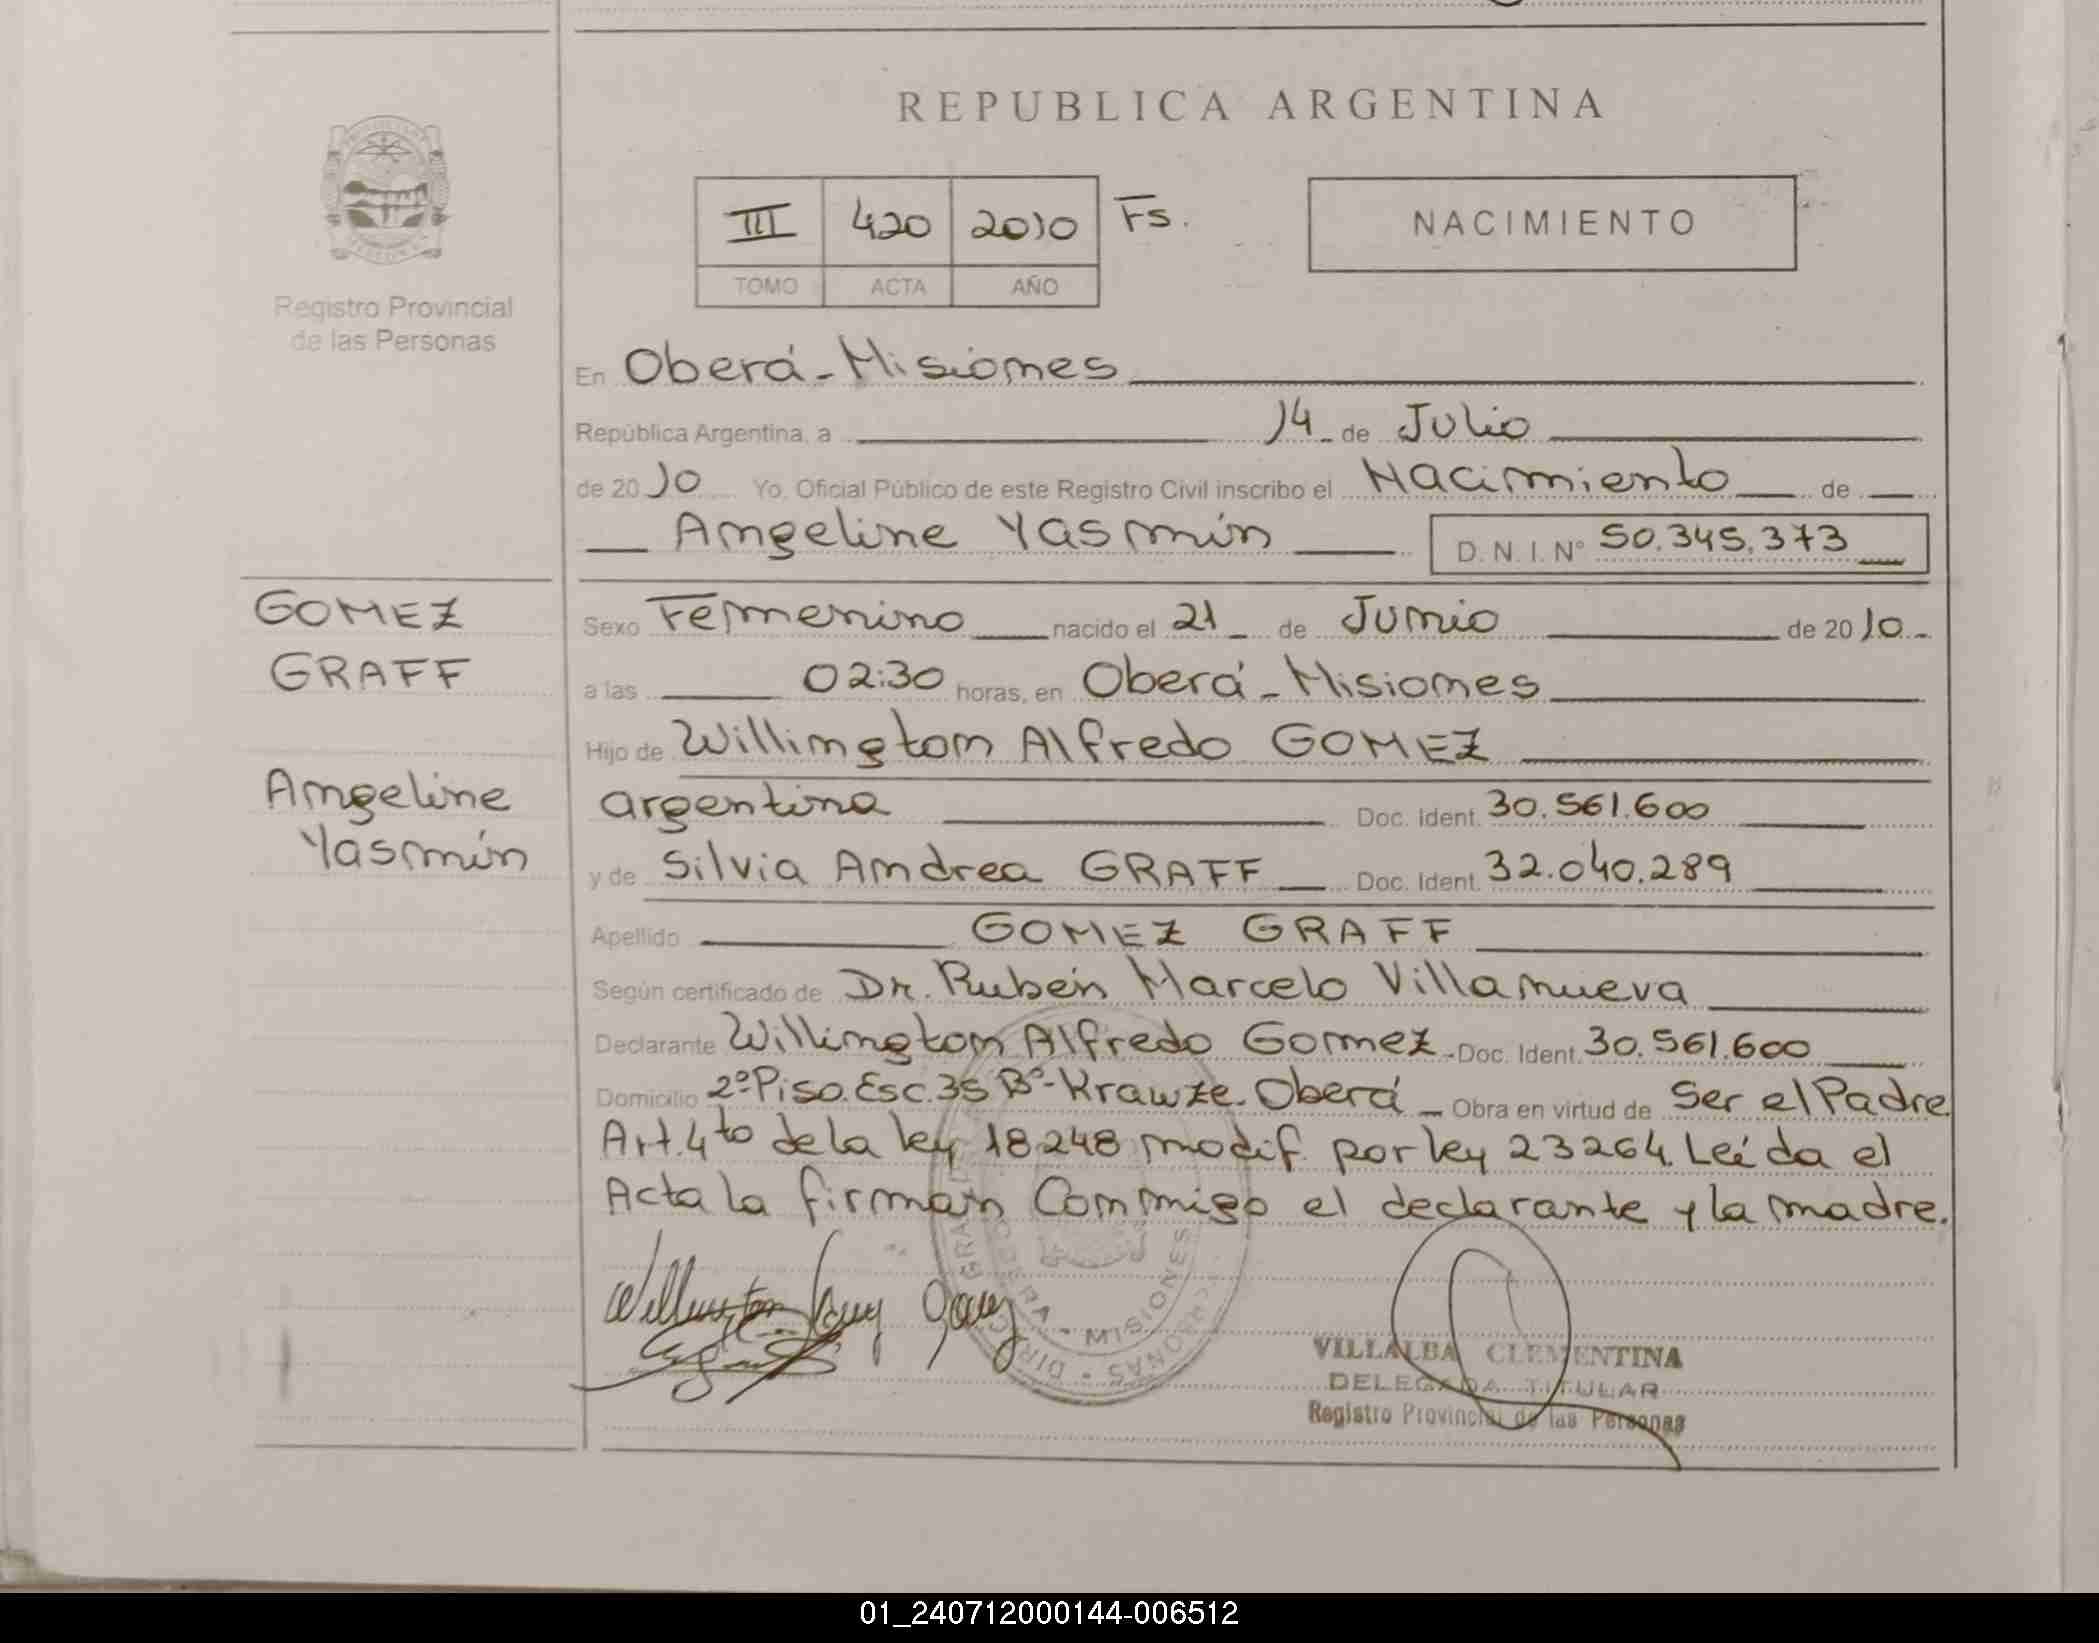 REPUBLICA ARGENTINA
III 420 2010 Fs.
TOMO ACTA AÑO
NACIMIENTO
Registro Provincial
de las Personas
En Oberá - Misiones
República Argentina, a 14 de Julio
de 2010 Yo, Oficial Público de este Registro Civil inscribo el Nacimiento de
Angeline Yasmín D.N.I. Nº 50.345.373
GOMEZ
GRAFF
Angeline
Yasmín
Sexo Femenino nacido el 21 de Junio de 2010
a las 02:30 horas, en Oberá - Misiones
Hijo de Willington Alfredo GOMEZ
argentina Doc. Ident. 30.561.600
y de Silvia Andrea GRAFF Doc. Ident. 32.040.289
Apellido GOMEZ GRAFF
Según certificado de Dr. Rubén Marcelo Villanueva
Declarante Willington Alfredo Gomez Doc. Ident. 30.561.600
Domicilio 2º Piso. Esc. 35 Bº- Krawze. Oberá Obra en virtud de Ser el Padre
Art. 4to de la ley 18248 modif. por ley 23264. Leída el
Acta la firman Conmigo el declarante y la madre.
MISIONES
VILLALBA CLEMENTINA
DELEGADA TITULAR
Registro Provincial de las Personas
01_240712000144-006512